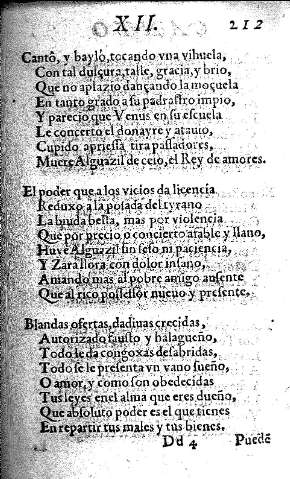 XII.
212
Cantò, y baylò, tocando vna vihuela,
Con tal dulçura, talle, gracia, y brio,
Que no aplazio dançando la moçuela
En tanto grado a su padrastro impio,
Y parecio que Venus en su escuela
Le concerto el donayre y atauio,
Cupido apriessa tira passadores,
Muere Alguazil de celo, el Rey de amores.
El poder que a los vicios da licencia
Reduxo a la posada del tyrano
La biuda bella, mas por violencia
Que por precio o concierto afable y llano,
Huye Alguazil sin seso ni paciencia,
Y Zara llora con dolor insano,
Amando mas al pobre amigo ausente
Que al rico possessor nueuo y presente.
Blandas ofertas, dadiuas crecidas,
Autorizado fausto y halagueño,
Todo se da congoxas desabridas,
Todo se le presenta vn vano sueño,
O amor, y como son obedecidas
Tus leyes en el alma que eres dueño,
Que absoluto poder es el que tienes
En repartir tus males y tus bienes.
Dd 4 Puedẽ